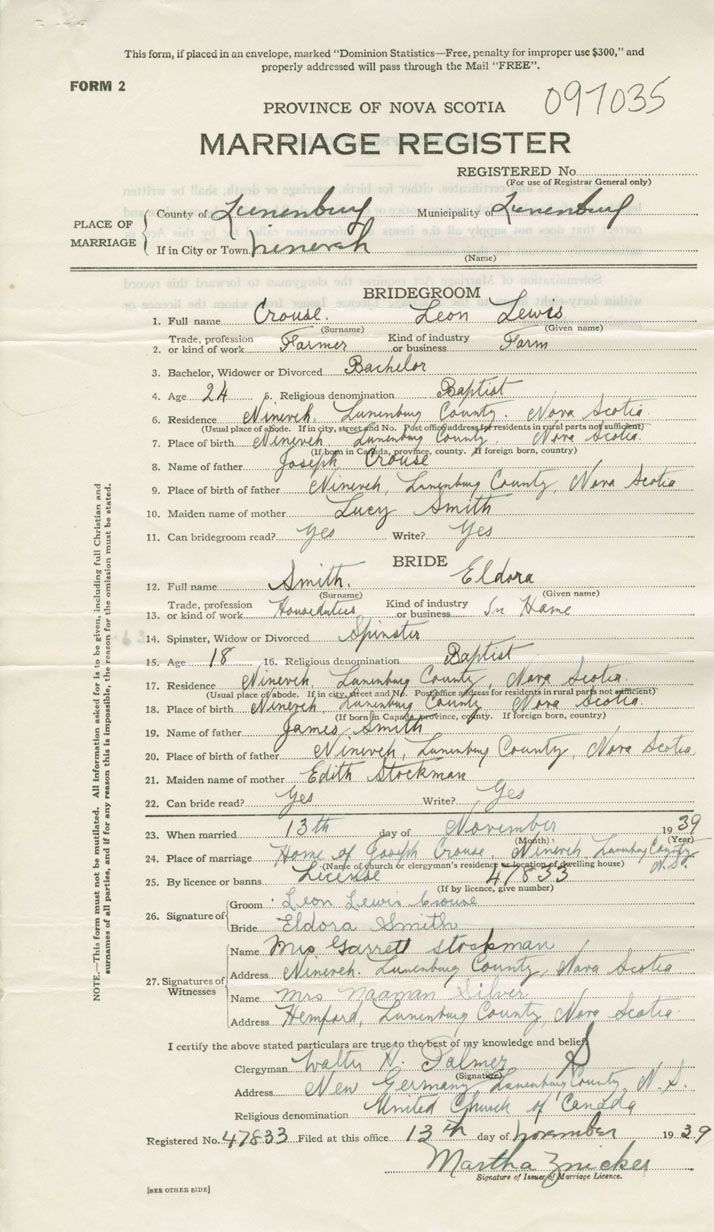 This form, if placed in an envelope, marked "Dominion Statistics—Free, penalty for improper use $300," and
properly addressed will pass through the Mail "FREE".
FORM 2
097035
PROVINCE OF NOVA SCOTIA
MARRIAGE REGISTER
REGISTERED No.
(For use of Registrar General only)
PLACE OF MARRIAGE
County of Lunenburg Municipality of Lunenburg
If in City or Town Nineveh
(Name)
BRIDEGROOM
1. Full name Crouse. Leon Lewis
(Surname) (Given name)
2. Trade, profession or kind of work Farmer Kind of industry or business Farm
3. Bachelor, Widower or Divorced Bachelor
4. Age 24 5. Religious denomination Baptist
6. Residence Nineveh, Lunenburg County, Nova Scotia
(Usual place of abode. If in city, street and No. Post office address for residents in rural parts not sufficient)
7. Place of birth Nineveh, Lunenburg County, Nova Scotia.
(If born in Canada, province, county. If foreign born, country)
8. Name of father Joseph Crouse
9. Place of birth of father Nineveh, Lunenburg County, Nova Scotia
10. Maiden name of mother Lucy Smith
11. Can bridegroom read? Yes Write? Yes
BRIDE
12. Full name Smith. Eldora
(Surname) (Given name)
13. Trade, profession or kind of work Houseduties Kind of industry or business In Home
14. Spinster, Widow or Divorced Spinster
15. Age 18 16. Religious denomination Baptist
17. Residence Nineveh, Lunenburg County, Nova Scotia.
(Usual place of abode. If in city, street and No. Post office address for residents in rural parts not sufficient)
18. Place of birth Nineveh, Lunenburg County Nova Scotia.
(If born in Canada, province, county. If foreign born, country)
19. Name of father James Smith
20. Place of birth of father Nineveh, Lunenburg County, Nova Scotia.
21. Maiden name of mother Edith Stockman
22. Can bride read? Yes Write? Yes
23. When married 13th day of November 1939
(Month) (Year)
24. Place of marriage Home of Joseph Crouse, Nineveh, Lunenburg County N.S.
(Name of church or clergyman's residence or location of dwelling house)
25. By licence or banns License 47833
(If by licence, give number)
26. Signature of
Groom Leon Lewis Crouse
Bride Eldora Smith
27. Signatures of Witnesses
Name Mrs Garrett Stockman
Address Nineveh, Lunenburg County, Nova Scotia
Name Mrs Naaman Silver
Address Hemford, Lunenburg County, Nova Scotia
I certify the above stated particulars are true to the best of my knowledge and belief
Clergyman Walter H. Palmer
(Signature)
Address New Germany Lunenburg County, N.S.
Religious denomination United Church of Canada
Registered No. 47833 Filed at this office 13th day of November 1939
Martha Znicker
Signature of Issuer of Marriage Licence.
[SEE OTHER SIDE]
NOTE.—This form must not be mutilated. All information asked for is to be given, including full Christian and
surnames of all parties, and if for any reason this is impossible, the reason for the omission must be stated.